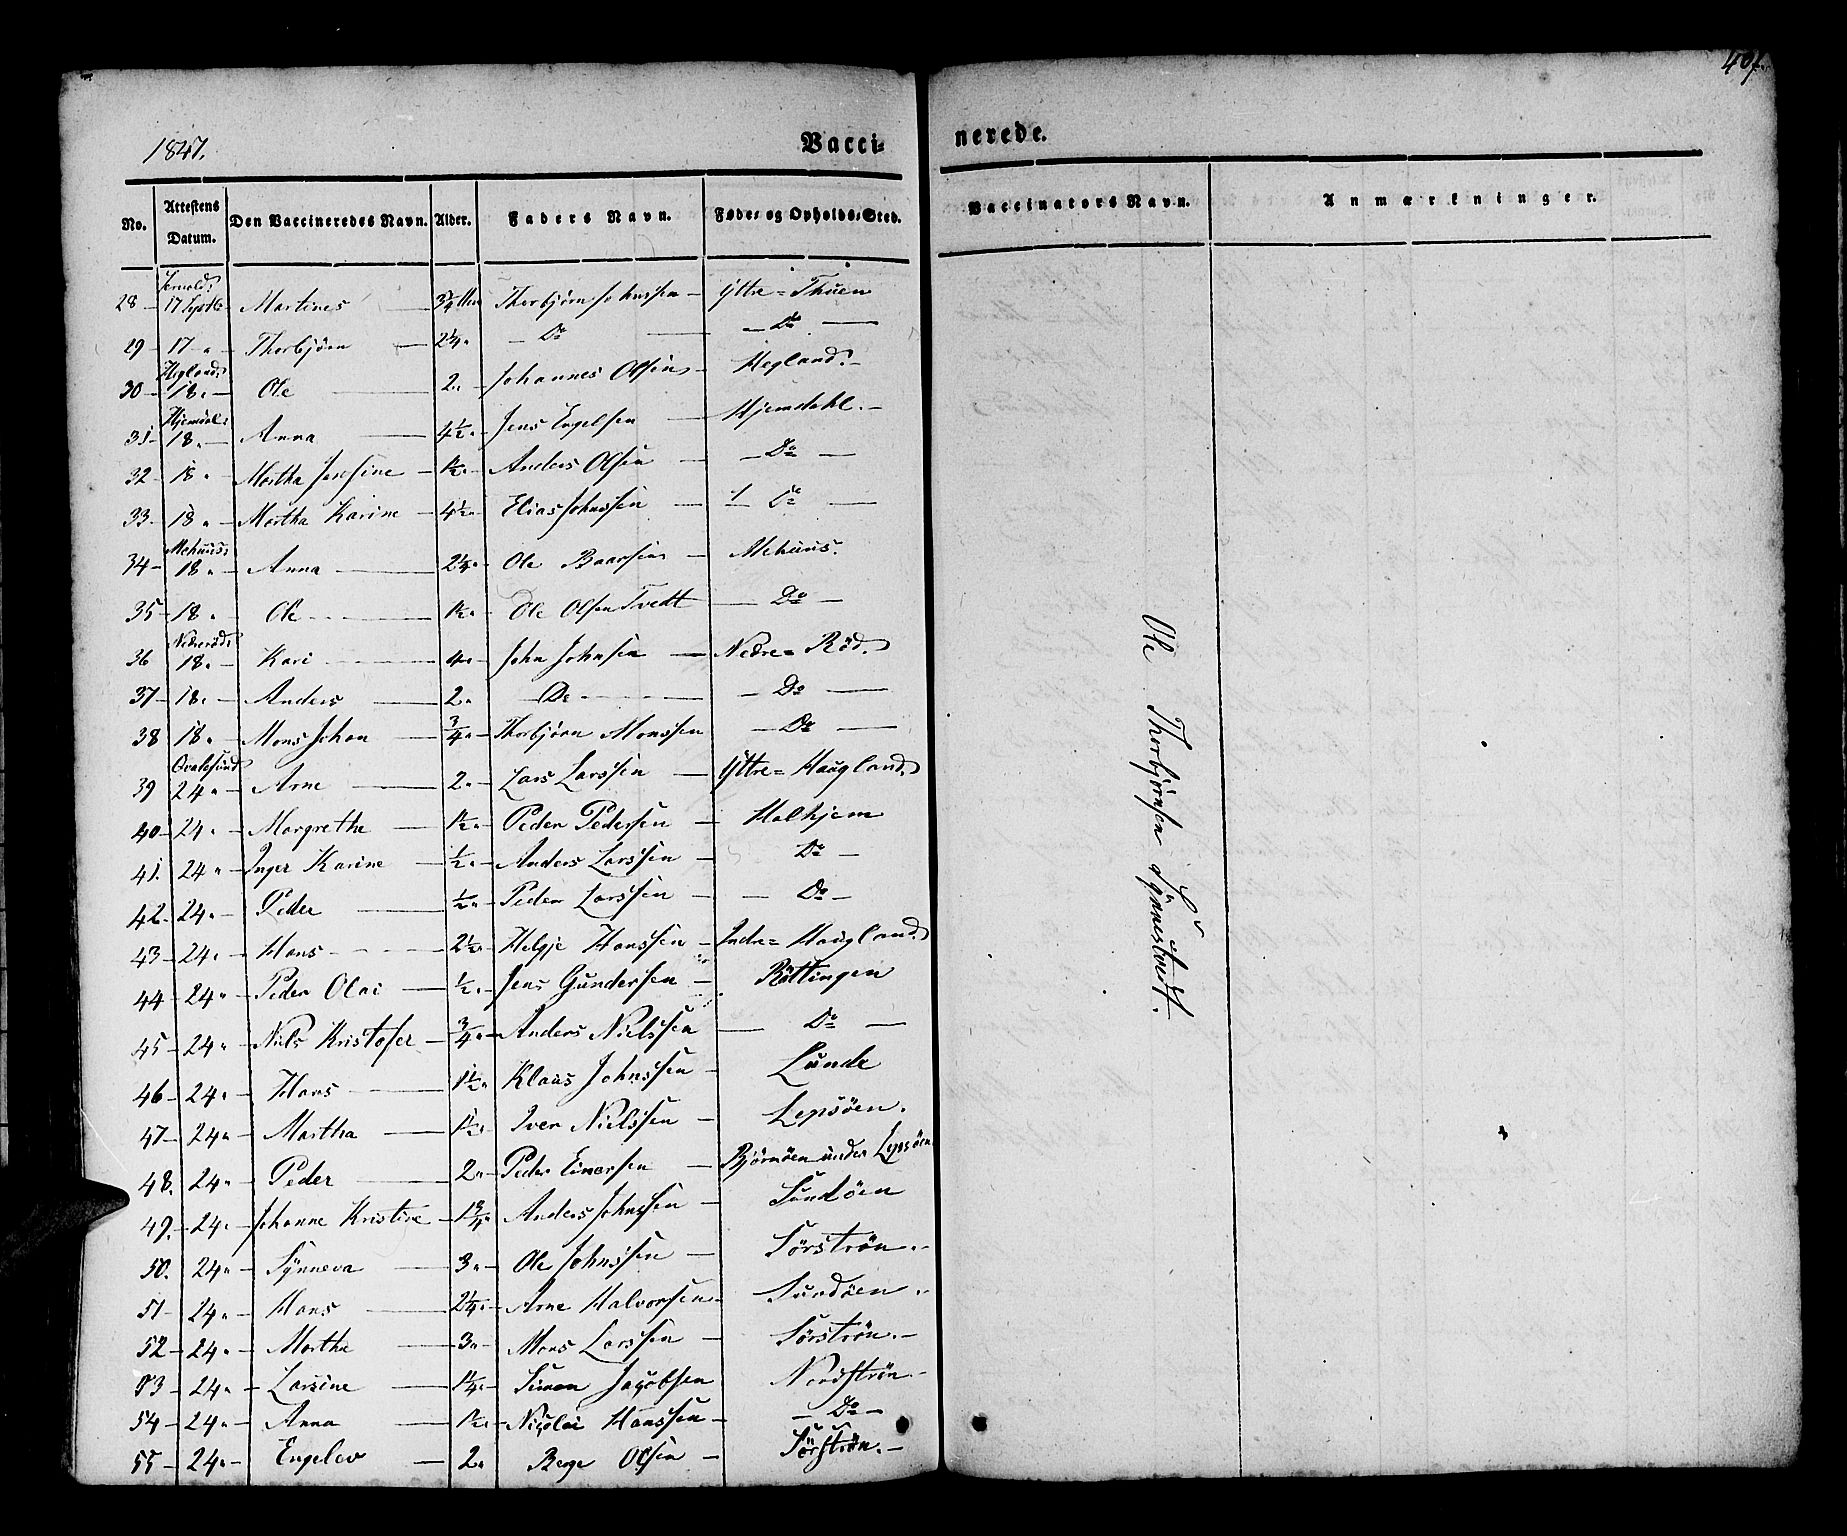 407.
1847.
Vacci- nerede.
No. | Attestens Datum. | Den Vaccineredes Navn. | Alder. | Faders Navn. | Føde- og Opholds-Sted. | Vaccinators Navn. | Anmærkninger.
28 - 17 Martines - 3/4 Thorbjørn Johnssen - Yttre = Thuen
29 - 17 " - Thorbjörn - 2 1/4 " - Do - Do -
Hegland
30 - 18 " - Ole - 2 " - Johannes Olsen - Hegland. -
Hjemdal
31 - 18 " - Anna - 4 1/2 " - Jens Engelsen - Hjemdahl. -
32 - 18 " - Martha Josefine - 1 1/2 " - Anders Olsen - Do -
33 - 18 " - Martha Karine - 4 1/2 " - Elias Johnssen - Do -
Mehuus
34 - 18 " - Anna - 2 1/4 " - Ole Baarsen - Mehuus.
35 - 18 " Ole - 1 1/2 " - Ole Olsen Tvedt - Do -
Nedreröd
36 18 " - Kari - 4 " - John Johnsen - Nedre = Röd.
37 - 18 " - Anders - 2 " - Do - Do -
38 18 " - Mons Johan - 3/4 " - Thorbjörn Monssen - Do -
Qvalesund
39 24 " - Arne - 2 " - Lars Larssen - Yttre = Haugland.
40 - 24 " - Margrethe - 1 1/2 " - Peder Pedersen - Halhjem
41. 24 " - Inger Karine - 1/2 " - Anders Larssen - Do -
42 - 24 " - Peder - 1/2 " - Peder Larssen - Do -
43 - 24 " - Hans - 2 1/2 " - Helgje Hanssen - Indre = Haugland.
44 - 24 " - Peder Olai - 1/2 " - Jens Gundersen - Röttingen
45 - 24 " - Nils Kristofer - 3/4 " - Anders Nielssen - Do -
46 - 24 " - Hans - 1 1/2 " Klaus Johnssen - Lunde
47 - 24 " - Martha - 1 1/2 " - Iver Nielssen - Lepsöen.
48. - 24 " - Peder - 2 " - Peder Einersen - Björnöen under Lepsöen
49. - 24 " - Johanne Kristine - 1 3/4 " - Anders Johnssen - Sundöen
50. 24 " - Synneva - 3 " - Ole Johnssen - Sörströn. -
51 - 24 " - Hans - 2 1/4 " - Arne Halvorsen - Sundöen. -
52 - 24 " - Marthe - 3 " - Mons Larssen - Sörströn. -
53 - 24 " - Larsine - 1 1/4 " - Simon Jacobsen Nordströn. -
54 - 24 " - Anna - 1 1/2 " - Nicolai Hanssen - Do -
55 - 24 " - Engelev - 2 " Berge Olsen - Sörströn. -
Ole Thorbjörnsen